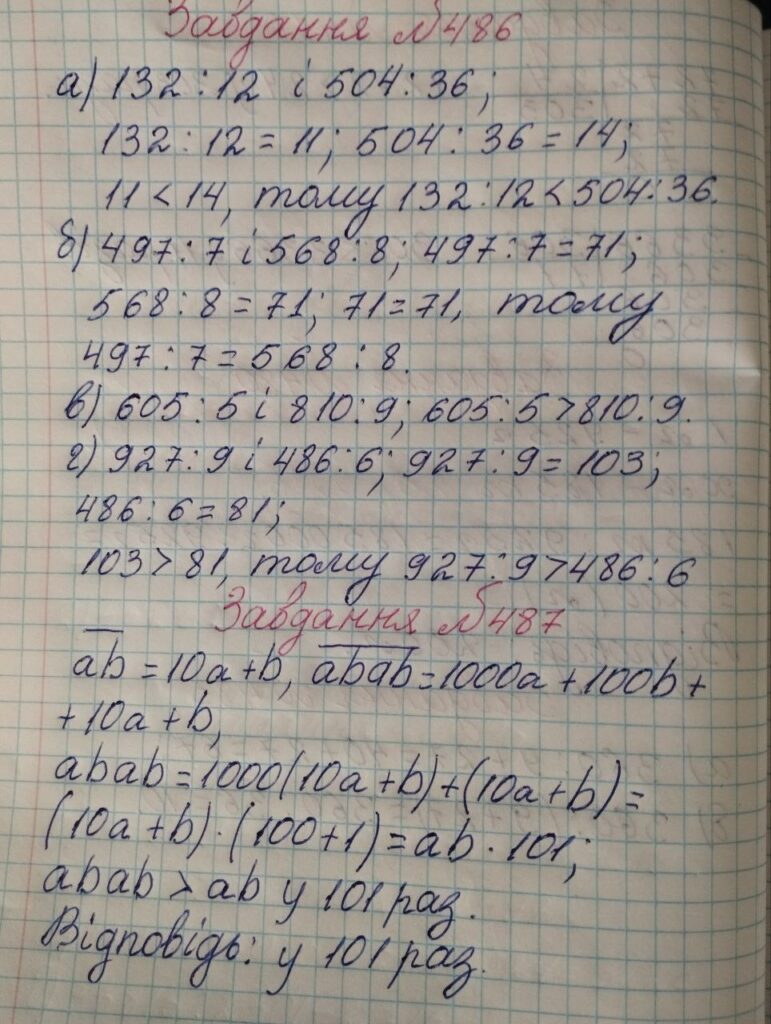 Завдання №486
а) 132 : 12 і 504 : 36;
132 : 12 = 11; 504 : 36 = 14;
11 < 14, тому 132 : 12 < 504 : 36.
б) 497 : 7 і 568 : 8; 497 : 7 = 71;
568 : 8 = 71; 71 = 71, тому
497 : 7 = 568 : 8.
в) 605 : 5 і 810 : 9; 605 : 5 > 810 : 9.
г) 927 : 9 і 486 : 6; 927 : 9 = 103;
486 : 6 = 81;
103 > 81, тому 927 : 9 > 486 : 6
Завдання №487
a̅b̅ = 10a + b, a̅b̅a̅b̅ = 1000a + 100b +
+ 10a + b,
abab = 1000(10a + b) + (10a + b) =
(10a + b) · (100 + 1) = ab · 101;
abab > ab у 101 раз.
Відповідь: у 101 раз.